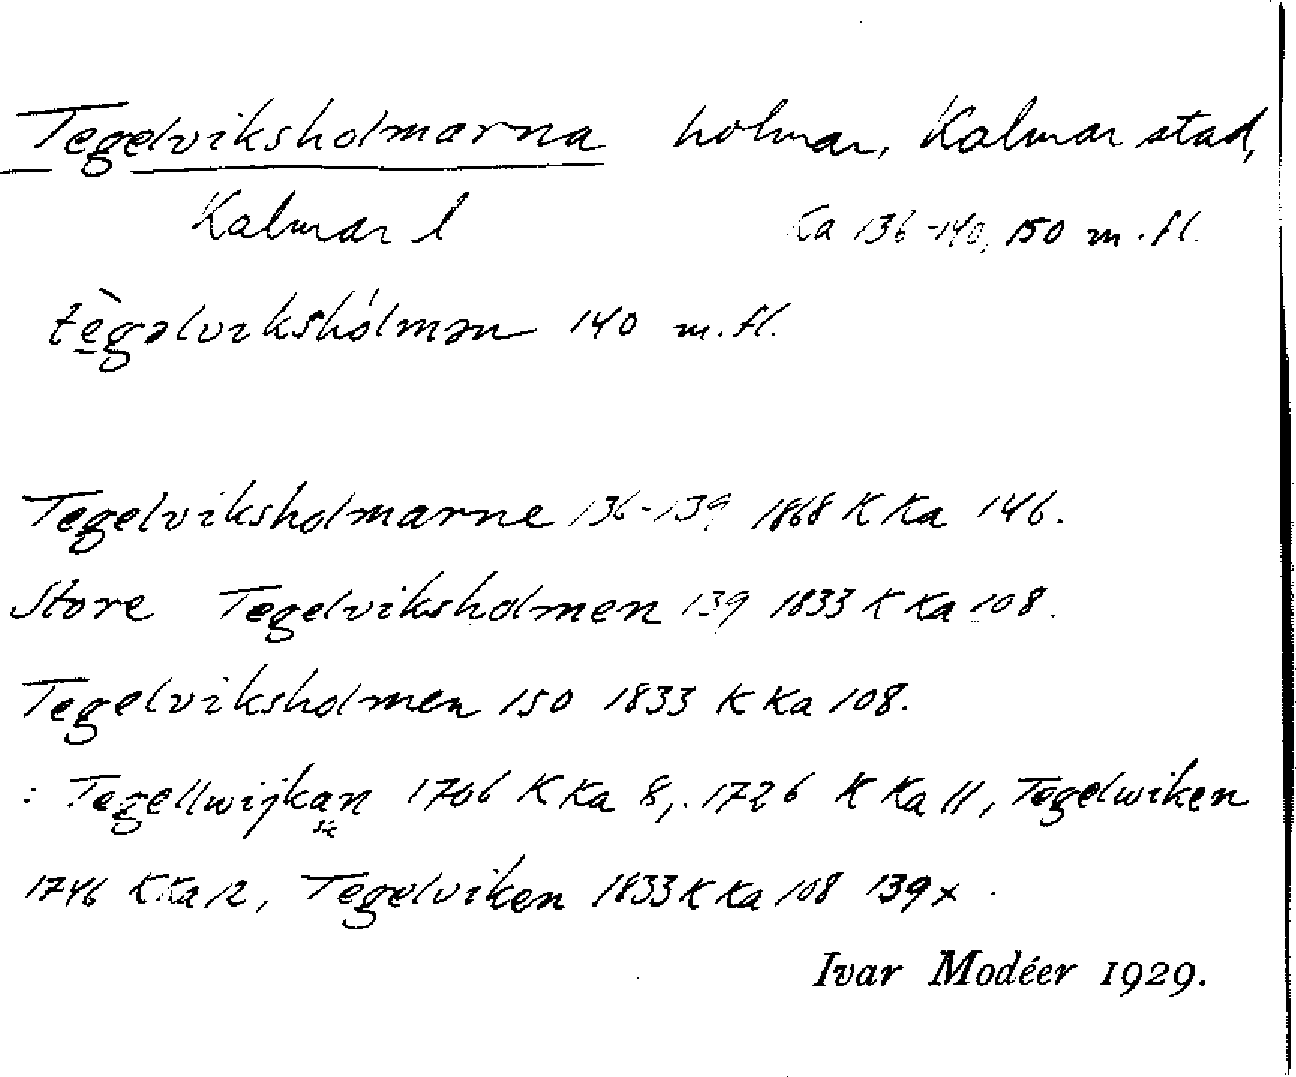 Tegelviksholmarna holmar, Kalmar stad,
Kalmar l Ka 136-140, 150 m.fl.
tè̠gəlvikshólmən 140 m.fl.
Tegelviksholmarne 136-139 1868 K Ka 146.
Store Tegelviksholmen 139 1833 K Ka 108.
Tegelviksholmen 150 1833 K Ka 108.
: Tegellwijkan 1706 K Ka 8, 1726 K Ka 11, Tegelwiken
sic
1746 K Ka 12, Tegelviken 1833 K Ka 108 139 x
Ivar Modéer 1929.